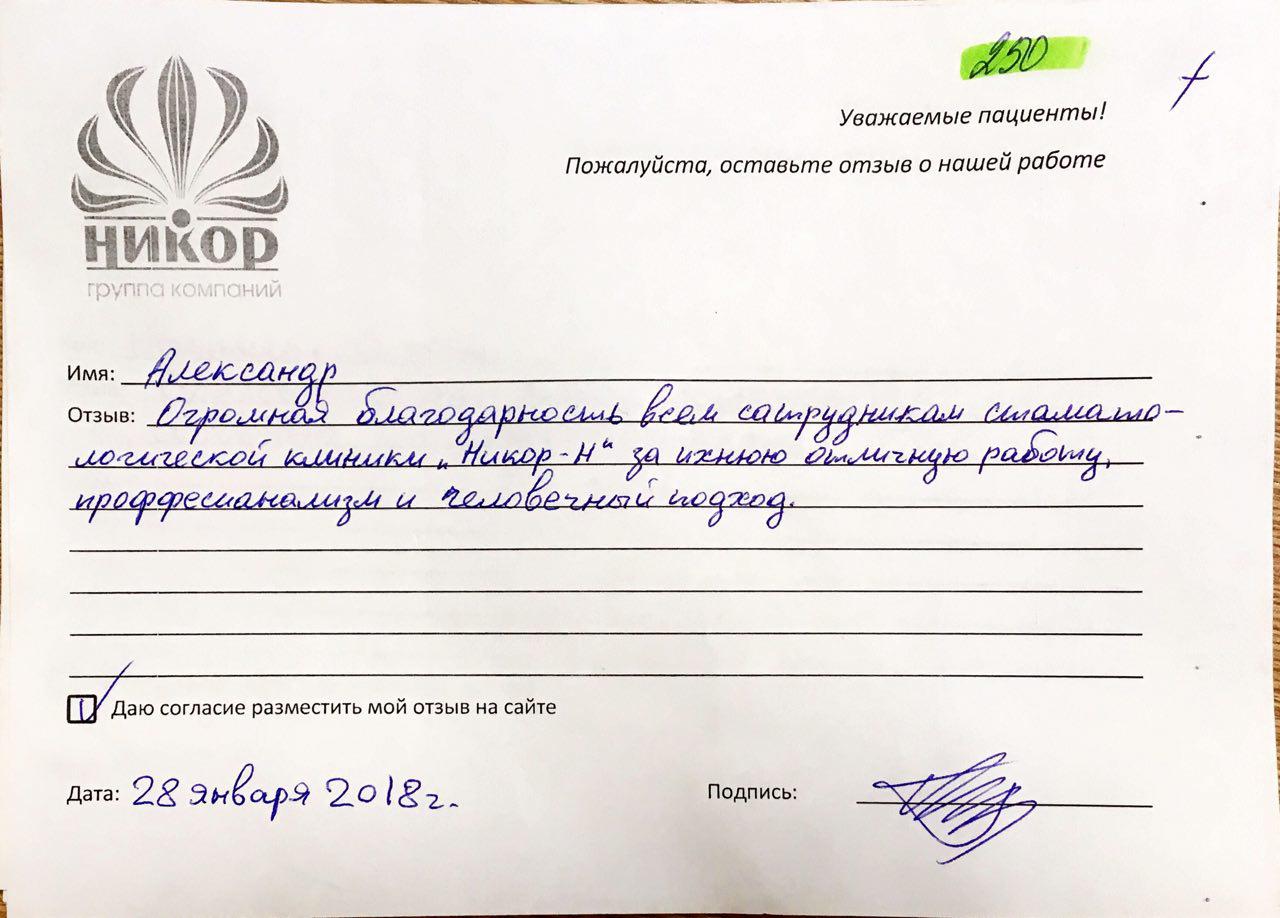 250
Уважаемые пациенты!
Пожалуйста, оставьте отзыв о нашей работе
НИКОР
группа компаний
Имя: Александр
Отзыв: Огромная благодарность всем сатрудникам стамато-
логической клиники „Никор-Н“ за ихнюю отличную работу,
проффесианализм и человечный подход.
Даю согласие разместить мой отзыв на сайте
Дата: 28 января 2018г.
Подпись: